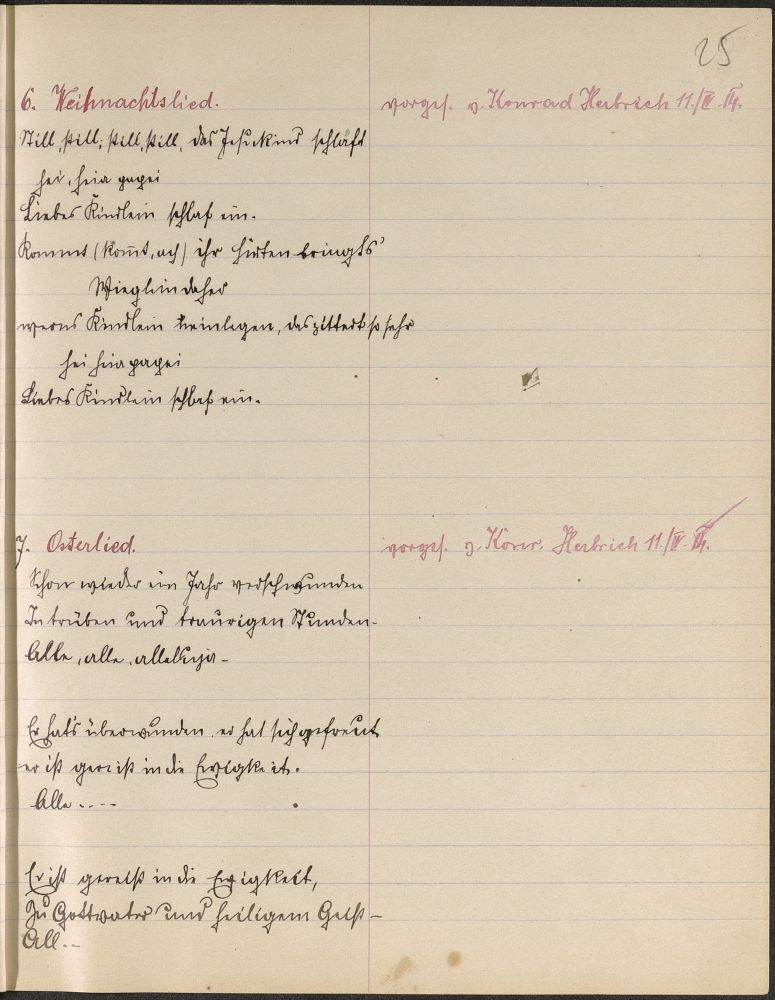 25
6. Weihnachtslied.
vorges. v. Konrad Herbrich 11./IV. 14.
Still, still, still, still, das Jesukind schlaft
hei, heia papei
Liebes Kindlein schlaf ein.
Kommt (kom̅t, ach) ihr Hirten bringts'
Wieglein daher
werns Kindlein neinlegen, das zittert so sehr
hei heia papei
Liebes Kindlein schlaf ein.
7. Osterlied.
vorges. v. Konr. Herbrich 11./IV. 14.
Schon wieder ein Jahr verschwunden
In trüben und traurigen Stunden -
Alle, alle, alleluja -
Er hat's überwunden, er hat sich gefreut
er ist gereist in die Ewigkeit.
Alle ....
Er ist gereist in die Ewigkeit,
Zu Gottvater und heiligem Geist -
All..